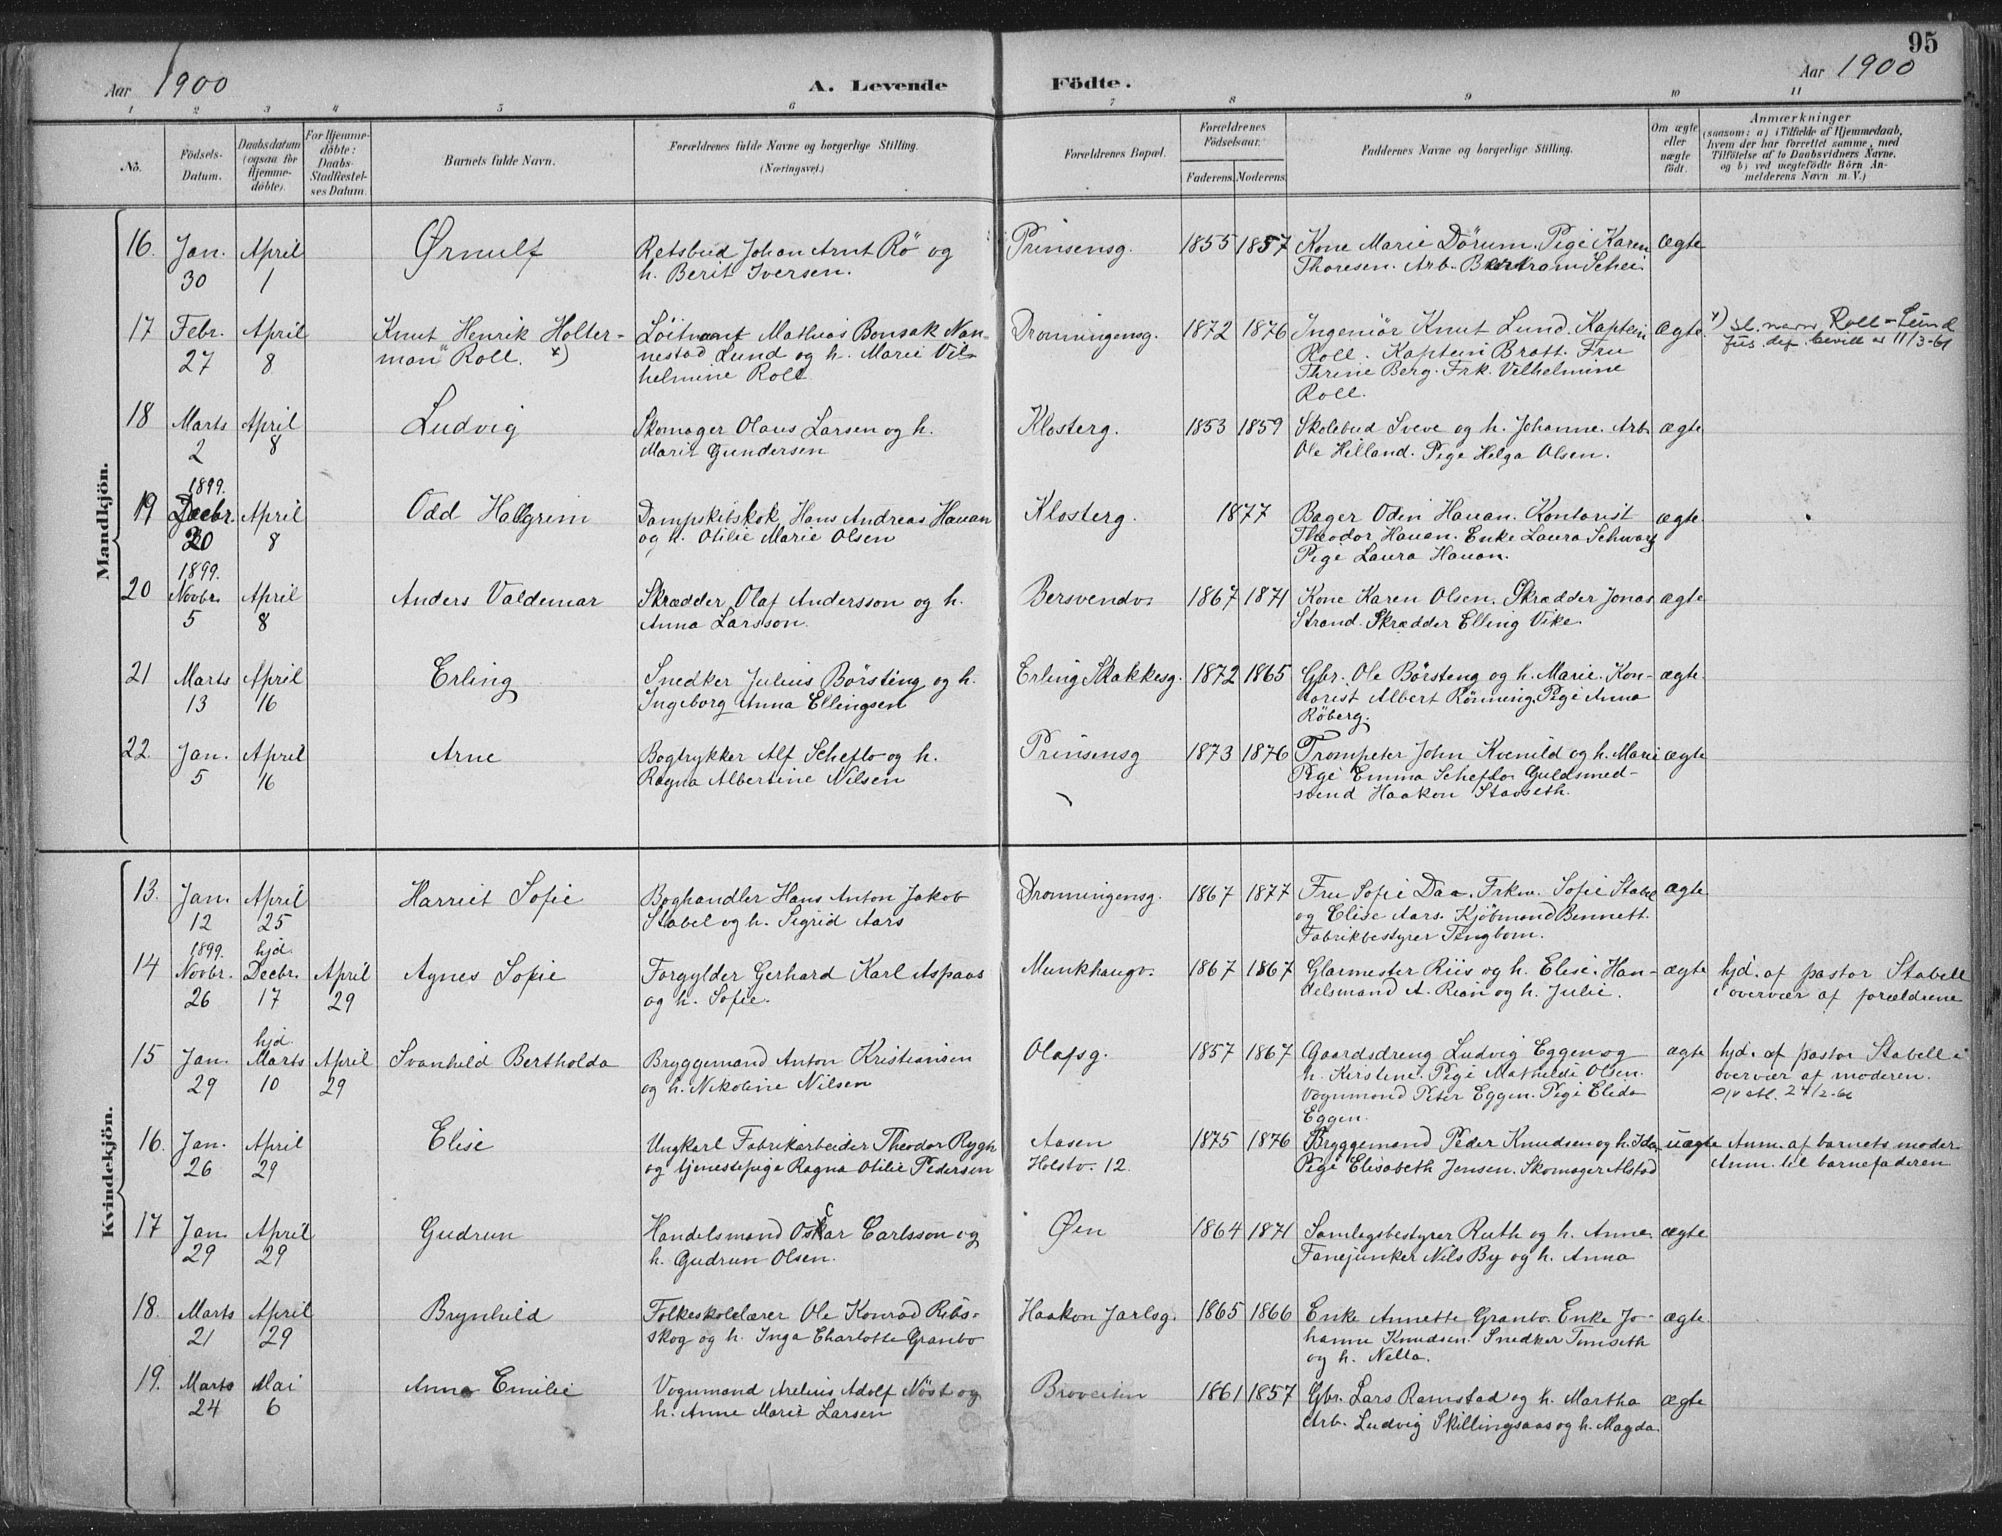 95
Aar 1900 A. Levende Födte. Aar 1900
1 2 3 4 5 6 7 8 9 10 11
No. Födsels-Datum. Daabsdatum (ogsaa for Hjemme-döbte). For Hjemme-döbte: Daabs-Stadfæstel-ses Datum. Barnets fulde Navn. Forældrenes fulde Navne og borgerlige Stilling. (Næringsvei.) Forældrenes Bopæl. Forældrenes Födselsaar. Faderens. Moderens. Faddernes Navne og borgerlige Stilling. Om ægte eller uægte födt. Anmærkninger (saasom: a) i Tilfælde af Hjemmedaab, hvem der har forrettet samme, med Tilföielse af to Daabsvidners Navne, og b) ved uegtefödte Börn An-melderens Navn m. V.)
Mandkjön.
16. Jan. April Ørnulf Retsbud Johan Arnt Rö og Prinsensg. 1855 1857 Kone Marie Dörum. Pige Karen Ægte
30 1 h. Berit Iversen. Thoresen. Arb. Bertram Schei.
17 Febr. April Knut Henrik Holter- Löitnant Mathias Bonsak Nan- Dronningensg. 1872 1876 Ingeniör Knut Lund. Kaptein Ægte. x) sl. navn Roll-Lund
27 8 man Roll. x) nestad Lund og h. Marie Vil- Roll. Kaptein Bratt. Fru Jus. dep. bevill. av 11/3-61
helmine Roll Thrine Berg. Frk. Vilhelmine
Roll.
18 Marts April Ludvig Skomager Olaus Larsen og h. Klosterg. 1853 1859 Skolebud Sveve og h. Johanne. Arb. ægte
2 8 Marit Gundersen Ole Hilland. Pige Helga Olsen.
1899.
19 Decbr. April Odd Hallgrim Dampskibskok Hans Andreas Hauan Klosterg. 1877 Bager Odin Hauan. Kontorist ægte.
20 8 og h. Otilie Marie Olsen Theodor Hauan. Enke Laura Schwarz
Pige Laura Hauan.
1899.
20 Novbr. April Anders Valdemar Skrædder Olaf Andersson og h. Bersvendv. 1867 1871 Kone Karen Olsen. Skrædder Jonas ægte
5 8 Anna Larsson. Strand. Skrædder Elling Vike.
21 Marts April Erling Snedker Julius Börsting og h. Erling Skakkesg. 1872 1865 Gbr. Ole Börsteng og h. Marie. Kon- ægte.
13 16 Ingeborg Anna Ellingsen torist Albert Rönning. Pige Anna
Röberg.
22. Jan. April Arne Bogtrykker Alf Scheflo og h. Prinsensg 1873 1876 Trompeter John Kvenild og h. Marie ægte
5 16 Ragna Albertine Nilsen Pige Emma Scheflo. Guldsmed-
svend Haakon Stavseth.
Kvindekjön.
13. Jan. April Harriet Sofie Boghandler Hans Anton Jakob Dronningensg. 1867 1877 Fru Sofie Daa. Frkn. Sofie Stabel ægte
12 25 Stabel og h. Sigrid Aars og Elise Aars. Kjöbmand Bennett.
Fabrikbestyrer Tengbom.
1899. hjd.
14 Novbr. Decbr. April Agnes Sofie Forgylder Gerhard Karl Aspaas Munkhaugv. 1867 1867 Glarmester Riis og h. Elise. Han- ægte hjd. af pastor Stabell
26 17 29 og h. Sofie. delsmand A. Rian og h. Julie. i overvær af forældrene
hjd.
15 Jan. Marts April Svanhild Bertholda Bryggemand Anton Kristiansen Olafsg. 1857 1867 Gaardsdreng Ludvig Eggen og ægte hjd. af pastor Stabell i
29 10 29 og h. Nikoline Nilsen h. Kirstine. Pige Mathilde Olsen. overvær af moderen.
Vognmand Peter Eggen. Pige Elida
Eggen.
16. Jan. April Elise Ungkarl Fabrikarbeider Theodor Rygh Aasen 1875 1876 Bryggemand Peder Knudsen og h. Ida uægte Anm. af barnets moder
26 29 og tjenestepige Ragna Otilie Pedersen Holstv. 12. Pige Elisabeth Jensen. Skomager Alstad Anm. til barnefaderen
17 Jan. April Gudrun Handelsmand Oscar Carlsson og Øen 1864 1871 Samlagsbestyrer Ruth og h. Anne. ægte
29 29 h. Gudrun Olsen. Fanejunker Nils By og h. Anna
18. Marts April Brynhild Folkeskolelærer Ole Konrad Ribs- Haakon Jarlsg. 1865 1866 Enke Annette Granbo. Enke Jo- ægte.
21 29 skog og h. Inga Charlotte Granbo hanne Knudsen. Snedker Tomseth
og h. Nella.
19. Marts Mai Anna Emilie Vognmand Arelius Adolf Nöst og Broveiten 1861 1857 Gbr. Lars Ramstad og h. Martha ægte
24 6 h. Anne Marie Larsen Arb. Ludvig Skillingsaas og h. Magda.